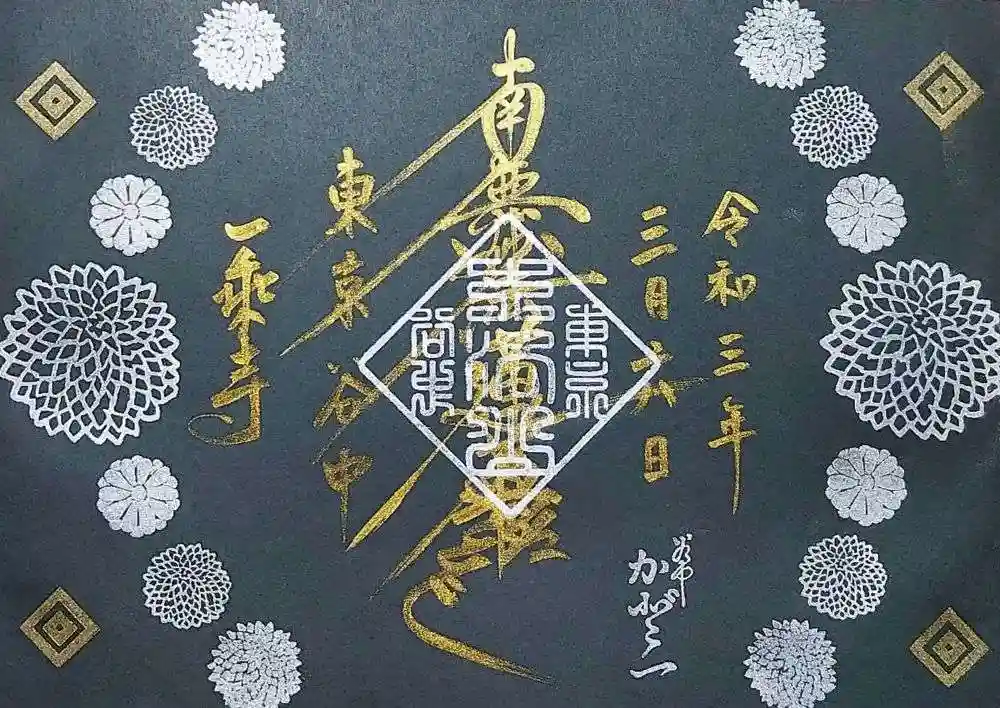 令和三年
三月六日
南無妙法蓮華経
東京谷中
一乗寺
東京
谷中